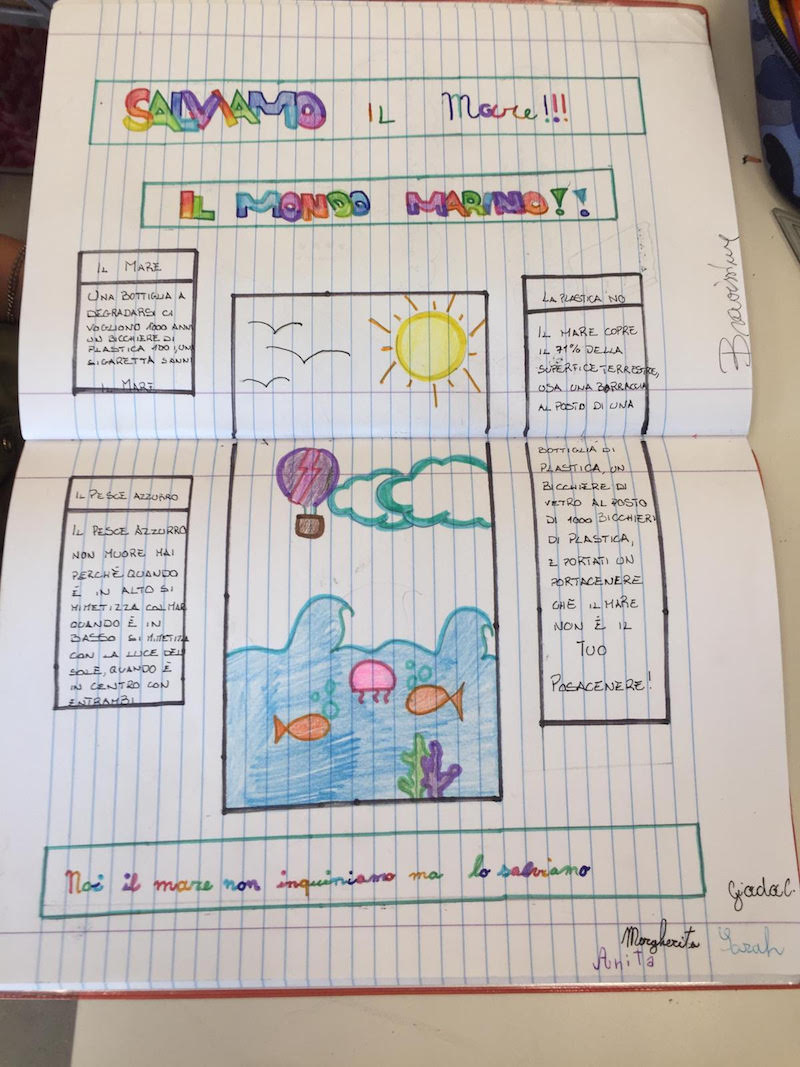 SALVIAMO IL Mare!!!
IL MONDO MARINO!!
IL MARE
UNA BOTTIGLIA A
DEGRADARSI CI
VOGLIONO 1000 ANNI
UN BICCHIERE DI
PLASTICA 100, UNA
SIGARETTA 5 ANNI
IL MARE
IL PESCE AZZURRO
IL PESCE AZZURRO
NON MUORE MAI
PERCHÈ QUANDO
È IN ALTO SI
MIMETIZZA COL MAR
QUANDO È IN
BASSO SI MIMETIZZA
CON LA LUCE DEL
SOLE, QUANDO È
IN CENTRO CON
ENTRAMBI
LA PLASTICA NO
IL MARE COPRE
IL 71% DELLA
SUPERFICE TERRESTRE,
USA UNA BORRACCIA
AL POSTO DI UNA
BOTTIGLIA DI
PLASTICA, UN
BICCHIERE DI
VETRO AL POSTO
DI 1000 BICCHIERI
DI PLASTICA,
E PORTATI UN
PORTACENERE
CHE IL MARE
NON È IL
TUO
POSACENERE!
Noi il mare non inquiniamo ma lo salviamo
Giada C.
Margherita
Sarah
Anita